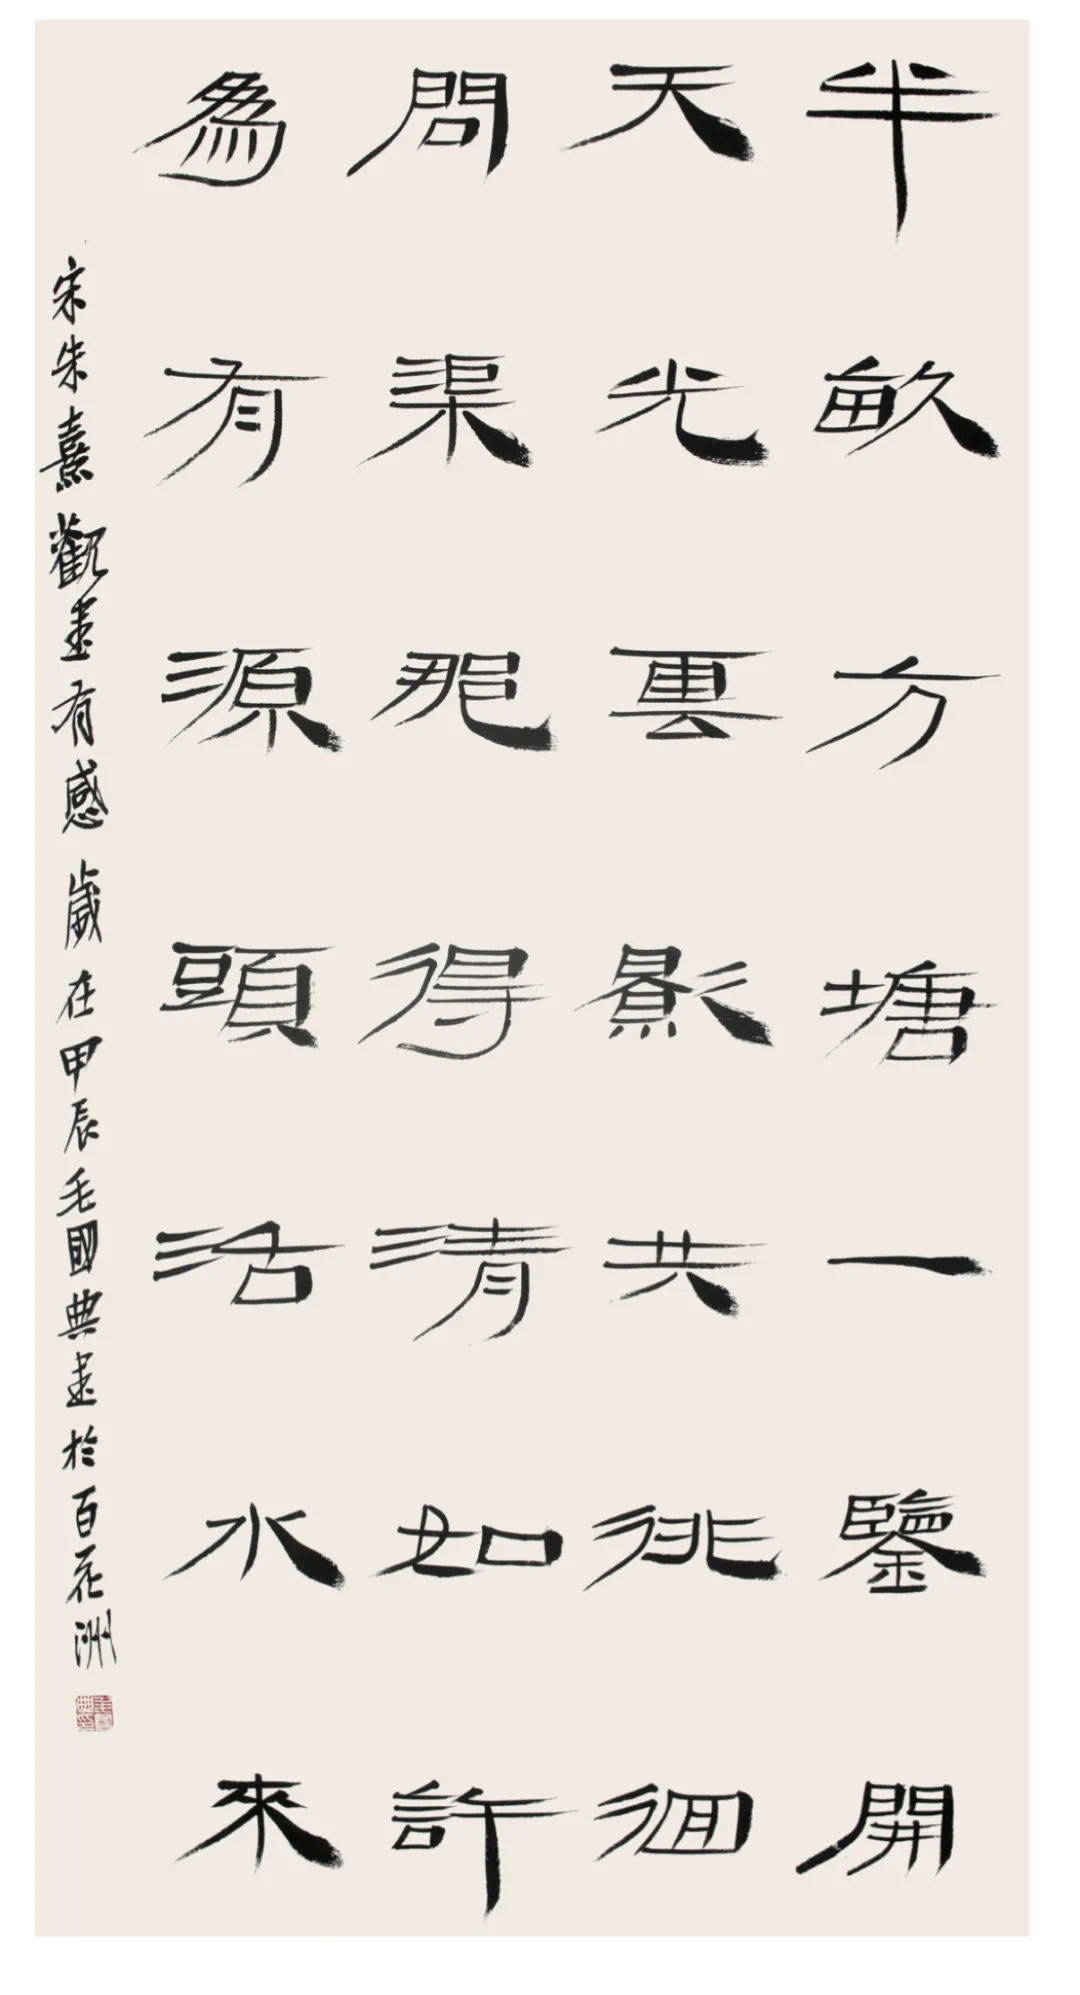 半畝方塘一鑒開
天光雲影共徘徊
問渠那得清如許
爲有源頭活水來
宋朱熹觀書有感歲在甲辰毛國典書於百花洲